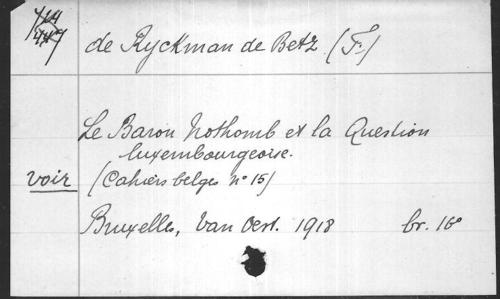 de Ryckman de Betz (F.)
Le Baron Nothomb et la Question
luxembourgeoise.
voir (Cahiers belges n° 15)
Bruxelles, Van Oest. 1918 br. 16°